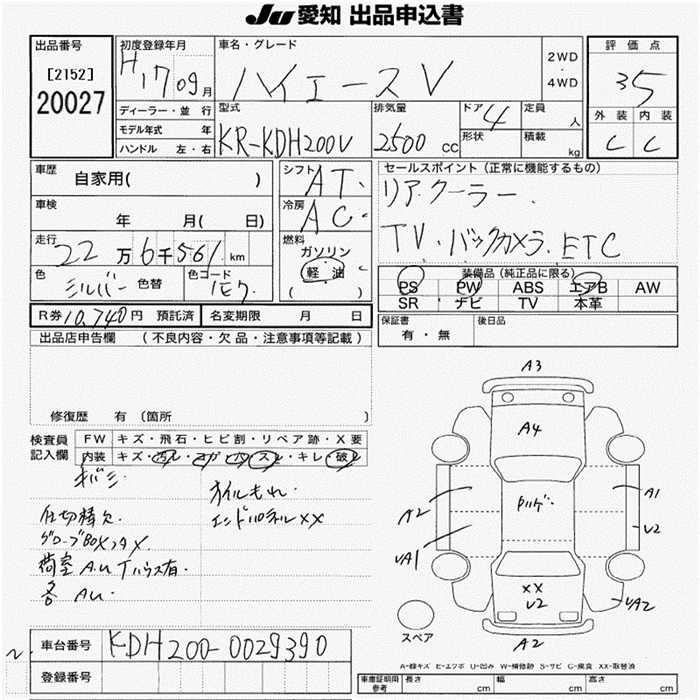 Ju 愛知 出品申込書
出品番号
[2152]
20027
初度登録年月
H17 09月
車名・グレード
ハイエースV
2WD
・
4WD
評価点
3.5
外装 内装
C C
ディーラー・並行
モデル年式 年
ハンドル 左・右
型式
KR-KDH200V
排気量
2500 CC
ドア 4
形状
定員 人
積載 kg
車歴
自家用( )
車検
年 月( 日)
走行
22万6千561km
色
シルバー 色替
色コード
1E7
シフト
AT
冷房
AC
燃料
ガソリン
軽油
( )
セールスポイント(正常に機能するもの)
リアクーラー
TV.バックカメラ.ETC
装備品(純正品に限る)
PS PW ABS エアB AW
SR ナビ TV 本革
R券 10,740円 預託済
名変期限 月 日
保証書
有・無
後日品
出品店申告欄 (不良内容・欠品・注意事項等記載)
修復歴 有 (箇所 )
検査員
記入欄
FW キズ・飛石・ヒビ割・リペア跡・X要
内装 キズ・汚レ・コゲ・ヒワ・スレ・キレ・破レ
仕切積欠.
グローブBOXフタX.
荷室A.uTハウス有.
各Au.
オイルもれ.
エンドパネルXX
A3
A4
A2
A1
U2
UA1
XX
U2
UA2
A2
スペア
車台番号
KDH200-0029390
登録番号
A-線キズ E-エクボ U-凹み W-補修跡 S-サビ C-腐食 XX-取替済
車庫証明用
参考
長さ cm
幅 cm
高さ cm